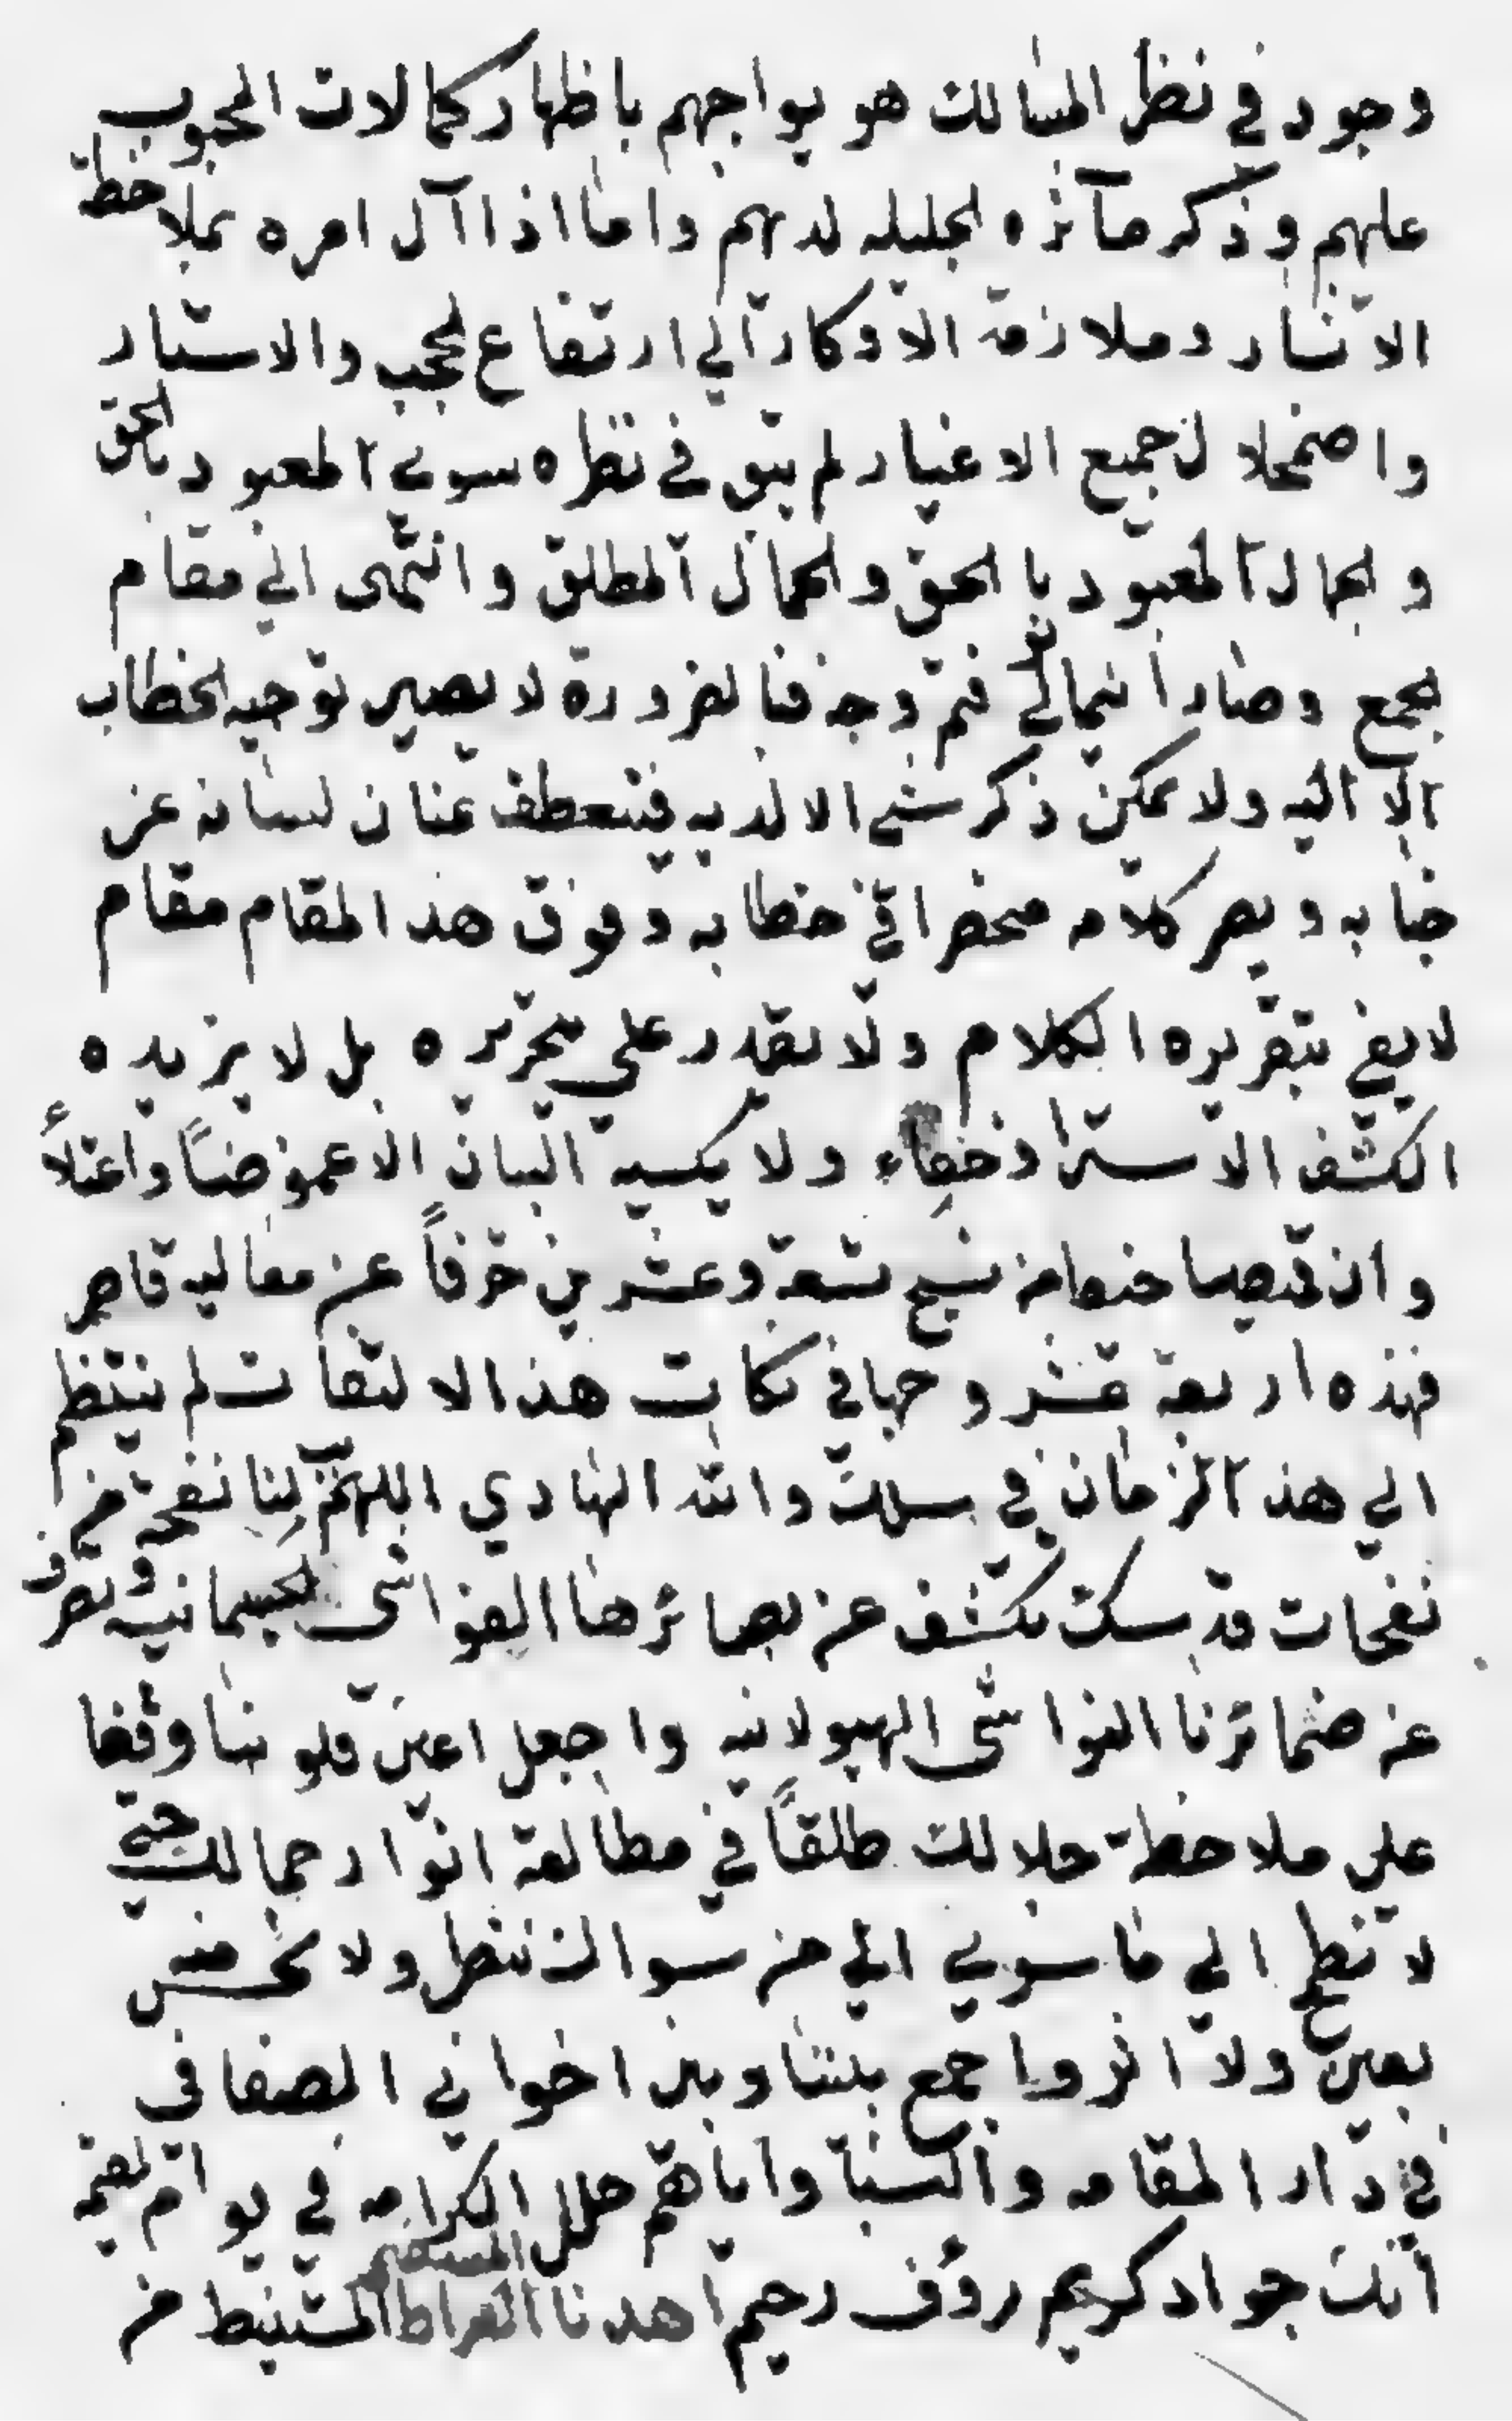 وجود في نظر السالك هو يواجههم باظهار كمالات المحبوب
عليهم وذكر مآثره الجليله لديهم واما اذا آل امره بملاحظة
الاثار وملازمة الاذكار الي ارتفاع الحجب والاستار
واضمحلال جميع الاغيار لم يبق في نظره سوي المعبود بالحق
والجمال المعبود بالحق والجمال المطلق وانتهى الي مقام
الجمع وصار اينما تولي فثم وجه فبالضرورة لا يصير توجيه الخطاب
الا اليه ولا يمكن ذكر شي الا لديه فينعطف عنان لسانه عن
جنابه ويصر كلامه منحصرا في خطابه وفوق هذا المقام مقام
لا يفي بتقريره الكلام ولا يقدر علي تحريره بل لا يزيده
الكشف الا سترا وخفاء ولا يكسيه البيان الا غموضاً واعتلاءً
وان قميصا خيط من نسج تسعة وعشرين حرفاً عن معاليه قاصر
فهذه اربعة عشر وجها في نكات هذا الالتفات لم ينتظم
الي هذا الزمان في سلك والله الهادي اللهم هب لنا نفحة من
نفحات قدسك تكشف عن بصائرها الغواشى الجسمانيه وتصرف
عن ضمائرنا النواشى الهيولانيه واجعل اعين قلوبنا وقفا
علي ملاحظة جلالك طلقاً في مطالعة انوار جمالك حتي
لا تطمح الي ما سوي الي من سواك بنظر ولا نحس منه
بعين ولا اثر واجمع بيننا وبين اخواني الصفا في
في دار المقامه والبسنا واياهم حلل الكرامه في يوام القيمة
انك جواد كريم رؤف رحيم اهدنا الصراط المستقيم المستنبط من